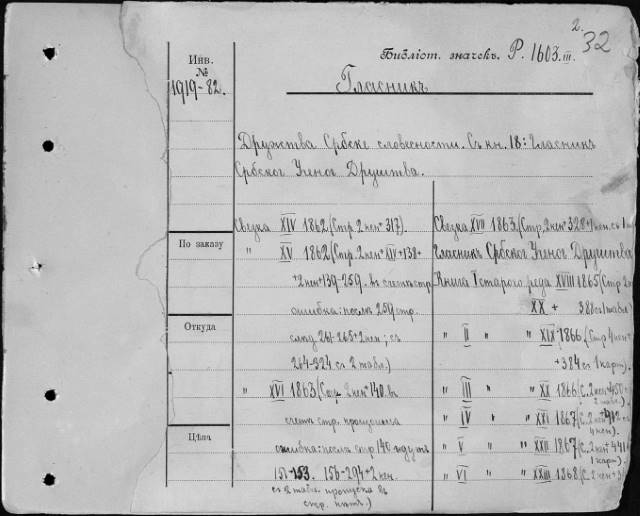 2. 32
Инв.
№
1919-82.
Библіот. значекъ. Р. 1603.III.
Гласникъ
Дружства Србске словесности. Съ кн. 18: Гласник
Србског Ученог Друштва.
Свезка XIV 1862 (Стр. 2 нен + 317).
" XV 1862 (Стр. 2 нен + XIV + 138 +
+ 2 нен + 139-259. въ счетъ стр.
ошибка: послѣ 259 стр.
слѣд. 261-265 + 2 нен; съ
264-324 съ 2 табл.)
" XVI 1863 (Стр. 2 нен + 140. въ
счетъ стр. пропущена
ошибка: послѣ стр 140 идутъ
151-153. 156-294 + 2 нен.
съ 2 табл. пропуска въ
стр. нѣтъ.)
По заказу
Откуда
Цѣна
Свезка XVII 1863. (Стр. 2 нен + 328 + 1 нен. съ 1
Гласник Србског Ученог Друштва
Книга I старога реда XVIII 1865 (Стр 2
XX + 388 съ 1 табл)
" II " " XIX 1866 (Стр 4 нен +
+ 384 съ 1 карт).
" III " " XX 1866 (С. 2 нен + 450 +
2 табл.)
" IV " " XXI 1867 (С. 2 нен + 412 +
4 нен).
" V " " XXII 1867 (С. 2 нен + 441 +
1 карт)
" VI " " XXIII 1868 (С. 2 нен + 3